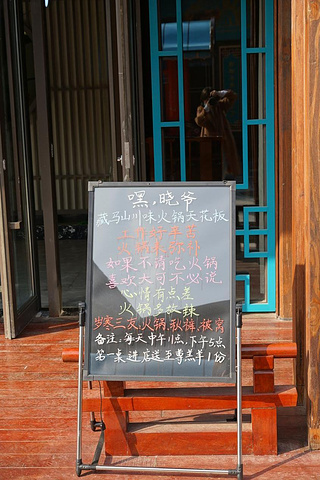 嘿,晓爷
藏马山川味火锅天花板
上班好辛苦
火锅来弥补
如果不请吃火锅
喜欢大可不必说
心情有点差
火锅多放辣
岁寒三友,火锅,秋裤,被窝
备注:每天中午11点,下午5点
第一桌进店送至尊羔羊1份